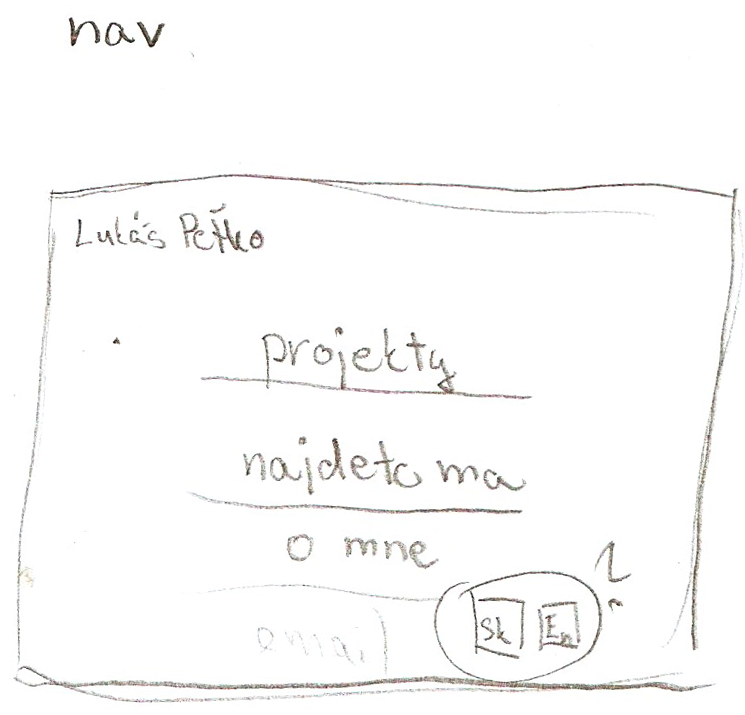 nav
Lukáš Peťko
projekty
najdete ma
o mne
email
Sk En ?